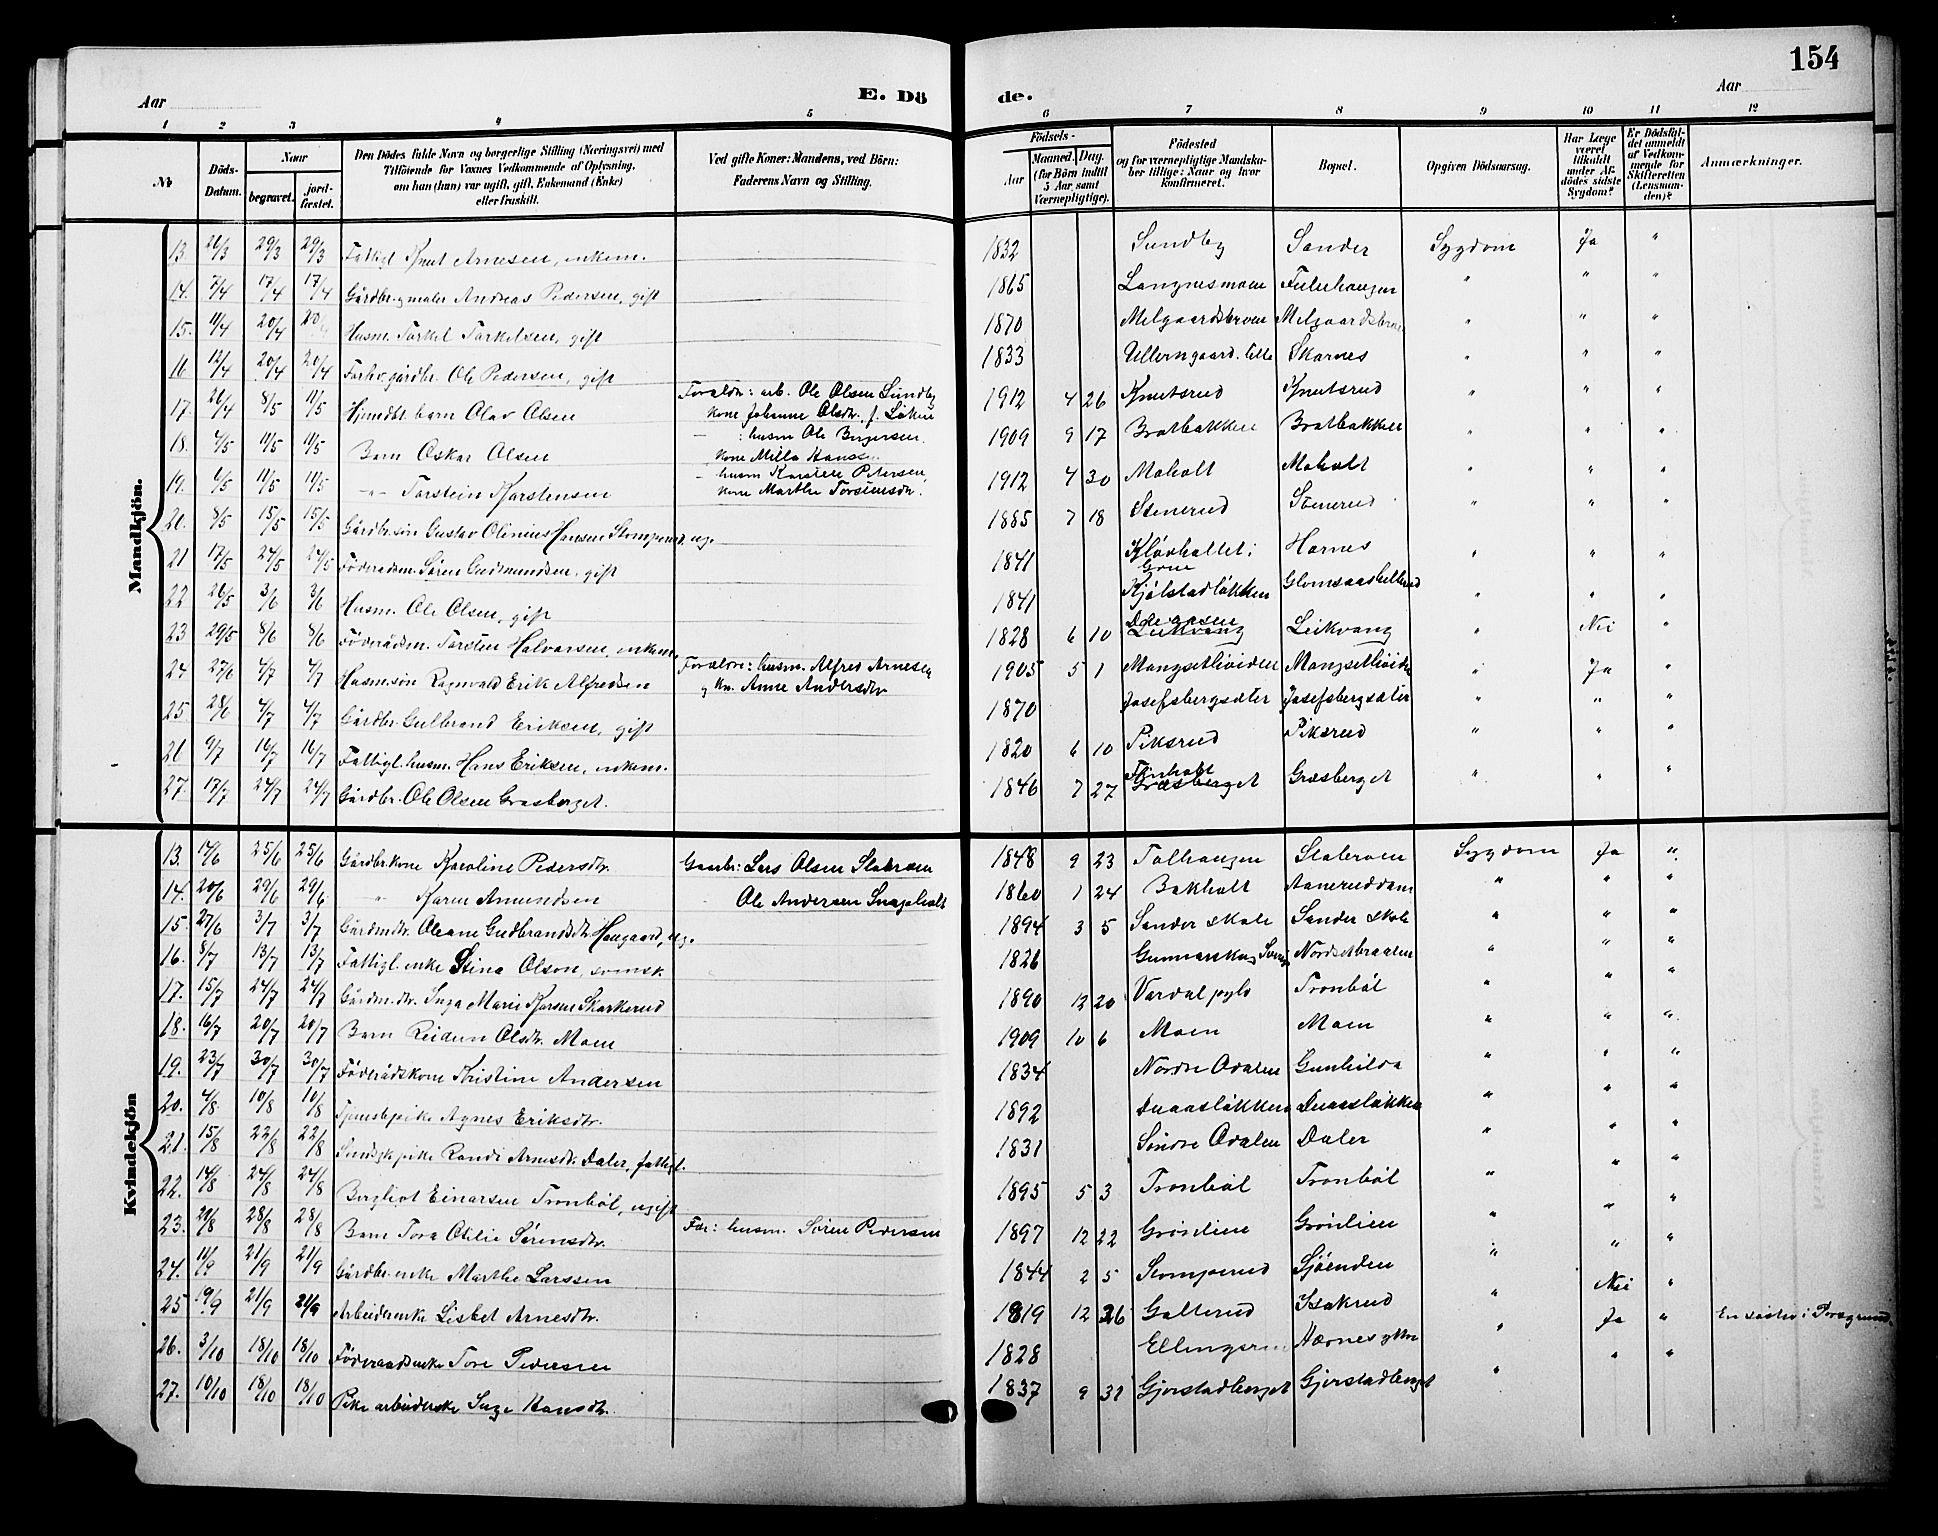 154
Aar E. Dö de. Aar
1 2 3 4 5 6 7 8 9 10 11 12
№ Döds-Datum. Naar begravet. jord-fæstet. Den Dödes fulde Navn og borgerlige Stilling (Næringsvei) med Tilföiende for Voxnes Vedkommende af Oplysning, om han (hun) var ugift, gift, Enkemand (Enke) eller fraskilt. Ved gifte Koner: Mandens, ved Börn: Faderens Navn og Stilling. Födsels- Aar Maaned. Dag. (for Börn indtil 5 Aar samt Værnepligtige). Födested og for værnepligtige Mandskaber tillige: Naar og hvor konfirmeret. Bopæl. Opgiven Dödsaarsag. Har Læge været tilkaldt under Afdödes sidste Sygdom? Er Dödsfaldet anmeldt af Vedkommende for Skifteretten (Lensmanden)? Anmærkninger.
Mandkjön.
13. 26/3 29/3 29/3 Fattigl. Knut Arnesen, enkem. 1832 Sundby Sander Sygdom Ja "
14. 7/4 17/4 17/4 Gårdbr. og maler Andreas Pedersen, gift 1865 Langnesmoen " " "
15. 11/4 20/4 20/4 Husm. Torkel Torkelsen, gift 1870 Melgaardsbroen Melgaardsbroen " " "
16 12/4 20/4 20/4 Forhv. gårdbr. Ole Pedersen, gift 1833 Ullerngaard. Skarnes " " "
17. 26/4 8/5 11/5 Hjemdbt barn Olav Olsen Foraldr: arb. Ole Olsen Sundby kone Johanne Olsdr. f. Löken 1912 4 26 Knutsrud Knutsrud " " "
18. 4/5 11/5 11/5 Barn Oskar Olsen — : husm Ole Birgersen kone Milla Hanssen 1909 9 17 Bratbakken Bratbakken " " "
19. 6/5 11/5 11/5 —"— Torstein Karstensen — husm Karsten Petersen, kone Marthe Torstensdr. 1912 4 30 Moholt Moholt " " "
20. 8/5 15/5 15/5 Gårdbr.sön Gustav Olinius Hansen Stomperud, ug. 1885 7 18 Stenerud Stenerud " " "
21 17/5 24/5 24/5 Föderådsm. Sören Gudmundsen, gift 1841 Klövhaltet i Grue Hornes " " "
22 26/5 3/6 3/6 Husm. Ole Olsen, gift 1841 Kjölstadlökken Glomsaashellerud " " "
23 29/5 8/6 8/6 Föderådsm. Torsten Halvorsen, enkem. 1828 6 10 Leikvang Leikvang " Nei "
24 27/6 4/7 4/7 Husm.sön Ragnvald Erik Alfredsen Forældre: husm. Alfred Arnesen og kn. Anne Andersdtr 1905 5 1 Mangsethviden Mangsethviden " Ja "
25 28/6 4/7 4/7 Gårdbr. Gulbrand Eriksen, gift 1870 Josefsbergsæter Josefsbergsæter " " "
26 9/7 16/7 16/7 Fattigl. husm. Hans Eriksen, enkem. 1820 6 10 Piksrud Piksrud " " "
27. 17/7 24/7 24/7 Gårdbr. Ole Olsen Græsberget. 1846 7 27 Finholt Græsberget Græsberget " " "
Kvindekjön
13. 17/6 25/6 25/6 Gårdbr.kone Karoline Pedersdtr. Gaarbr: Lars Olsen Slobroen 1848 9 23 Tolhaugen Slobroen Sygdom Ja "
14. 20/6 29/6 29/6 " Karen Amundsen Ole Andersen Snapholt 1860 1 24 Bakholt Aaneruddam " " "
15. 27/6 3/7 3/7 Gårdm.dtr. Oleane Gudbrandsdtr Haugaard, ug. 1894 3 5 Sander skole Sander skole " " "
16. 8/7 13/7 13/7 Fattigl. enke Stina Olson, svensk. 1826 Gunnarskog, Sverige Nordsetbraaten " " "
17. 15/7 24/7 24/7 Gårdm.dtr. Inga Marie Karsen Skarkerud 1890 12 20 Vardal Tronböl " " "
18. 16/7 20/7 20/7 Barn Reidun Olsdtr. Moen 1909 10 6 Moen Moen " " "
19. 23/7 30/7 30/7 Föderådskone Kristine Andersen 1834 Nordre Odalen Gunhilda " " "
20. 4/8 10/8 10/8 Tjenestepike Agnes Eriksdtr. 1892 Duaaslökken Duaaslökken " " "
21. 15/8 22/8 22/8 Sindsyk pike Randi Arnesdtr. Daler, fattigl. 1831 Söndre Odalen Daler " " "
22. 14/8 24/8 24/8 Bergliot Einarsen Tronböl, ugift 1895 5 3 Tronböl Tronböl " " "
23. 20/8 28/8 28/8 Barn Tora Otilie Sörensdtr. Far: husm. Sören Pedersen 1897 12 22 Grönlien Grönlien " " "
24. 11/9 21/9 21/9 Gårdbr. enke Marthe Larssen 1844 2 5 Stomperud Sjöenden " " "
25 19/9 21/9 21/9 Arbeiderenke Lisbet Arnesdtr. 1819 12 26 Galterud Isakrud " Nei "
26. 3/10 18/10 18/10 Föderaadsenke Tore Pedersen 1828 Ellingsrud Hærnes " Ja " En søster i Porsgrund
27. 10/10 18/10 18/10 Pike arbeiderske Inge Hansdtr. 1837 9 31 Gjerstadberget Gjerstadberget " " "